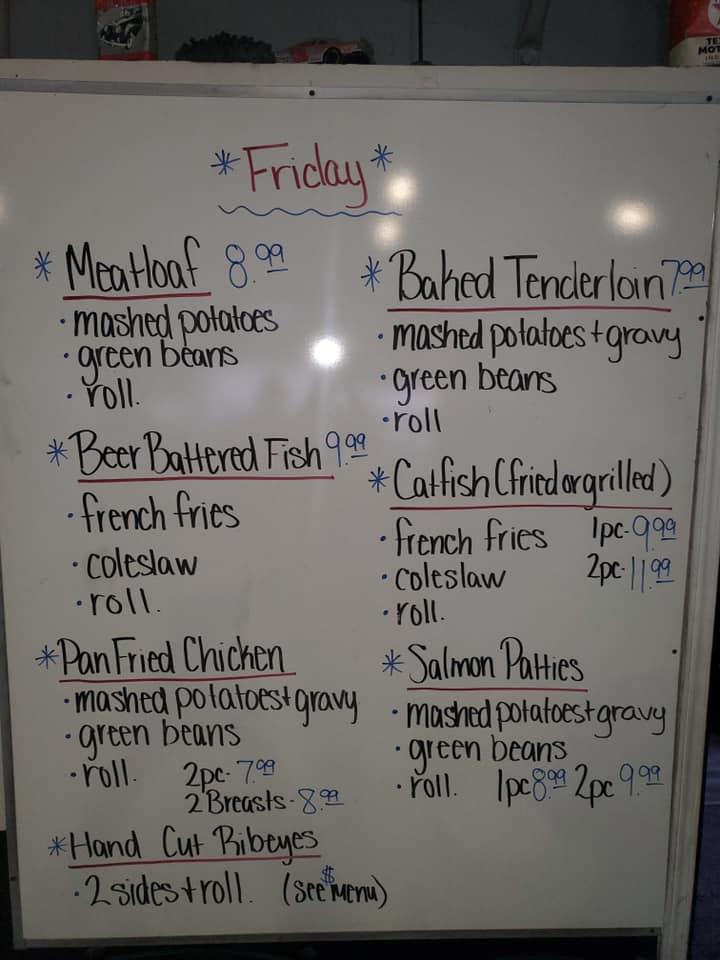 *Friday*
* Meatloaf 8.99
· mashed potatoes
· green beans
· roll.
* Beer Battered Fish 9.99
· french fries
· coleslaw
· roll.
* Pan Fried Chicken
· mashed potatoes + gravy
· green beans
· roll. 2pc- 7.99
2 Breasts - 8.99
* Hand Cut Ribeyes
· 2 sides + roll. (see $ menu)
* Baked Tenderloin 7.99
· mashed potatoes + gravy
· green beans
· roll
* Catfish (fried or grilled)
· french fries 1pc- 9.99
· coleslaw 2pc- 11.99
· roll.
* Salmon Patties
· mashed potatoes + gravy
· green beans
· roll. 1pc 8.99 2pc 9.99